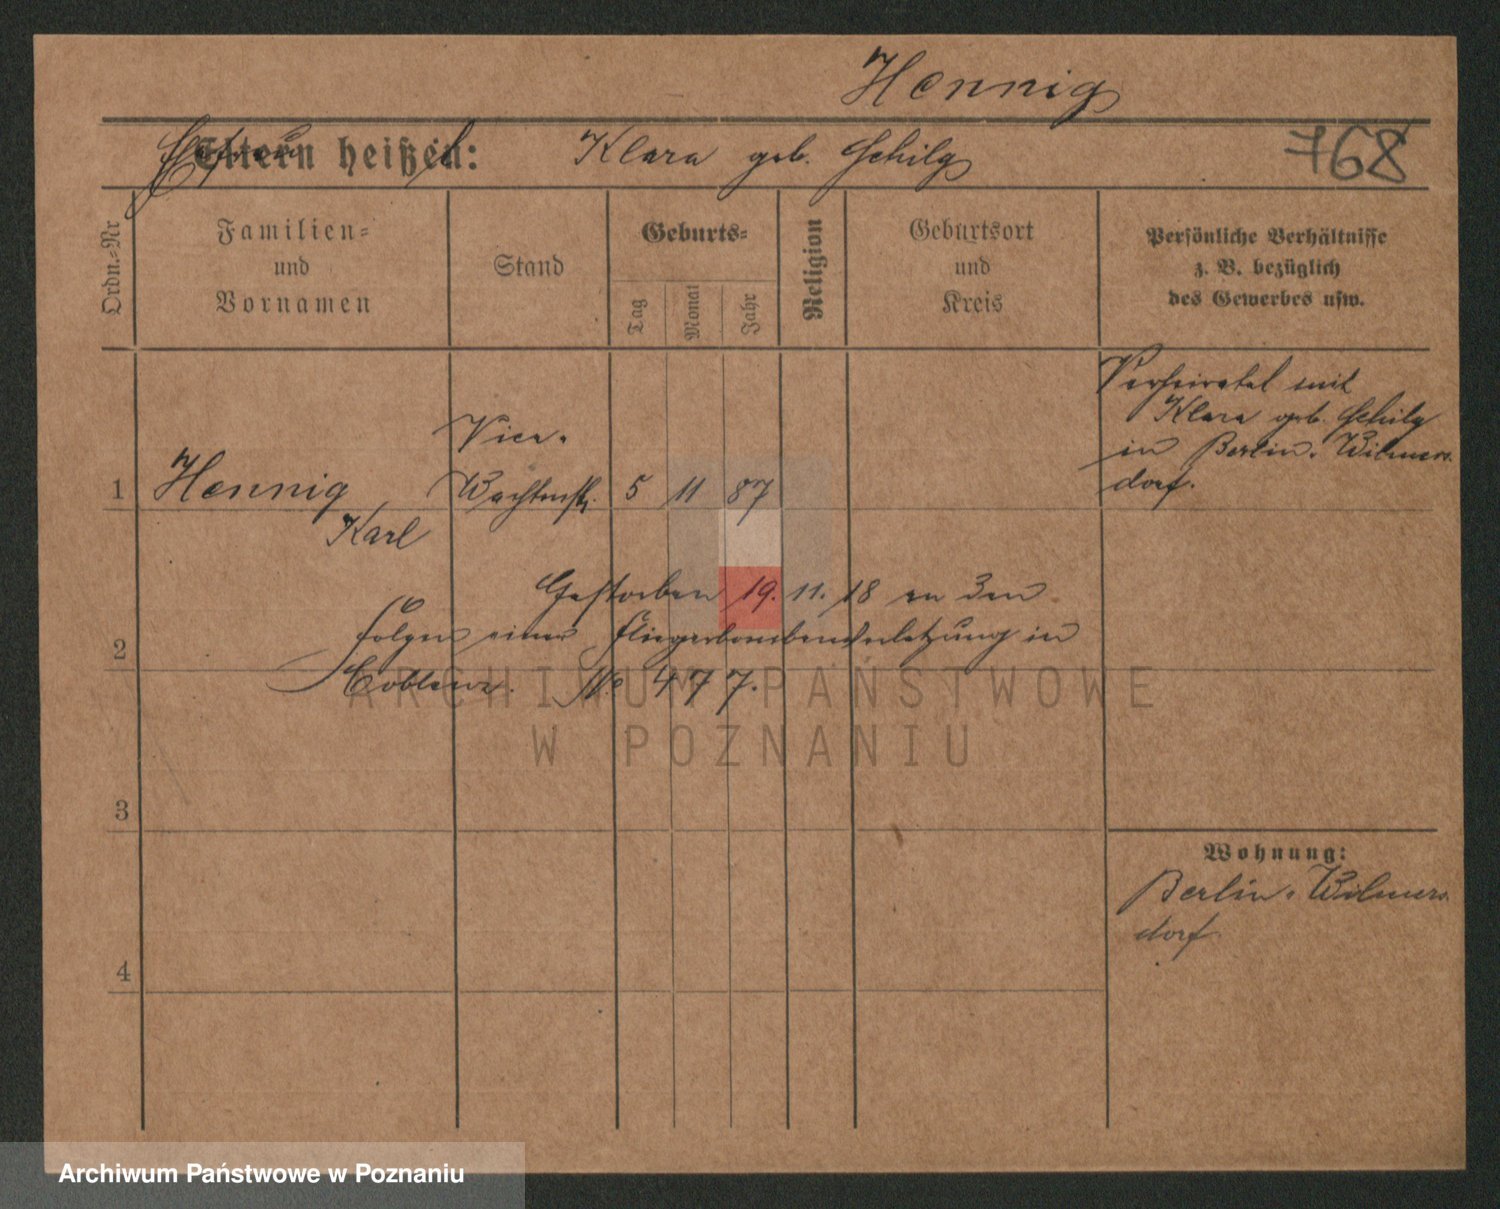 Hennig
Eltern heißen: Klara geb. Schilg
768
Ordn.-Nr
Familien-
und
Vornamen
Stand
Geburts-
Tag
Monat
Jahr
Religion
Geburtsort
und
Kreis
Persönliche Verhältnisse
z. B. bezüglich
des Gewerbes usw.
Verheiratet mit
Klara geb. Schilg
in Berlin-Wilmers-
dorf.
Vice-
1 Hennig Wachtmstr. 5 11 87
Karl
Gestorben 19. 11. 18 an den
2 Folgen einer Fliegerbombenverletzung in
Coblenz. No 477.
ARCHIWUM PAŃSTWOWE
W POZNANIU
3
Wohnung:
Berlin-Wilmers-
dorf
4
Archiwum Państwowe w Poznaniu